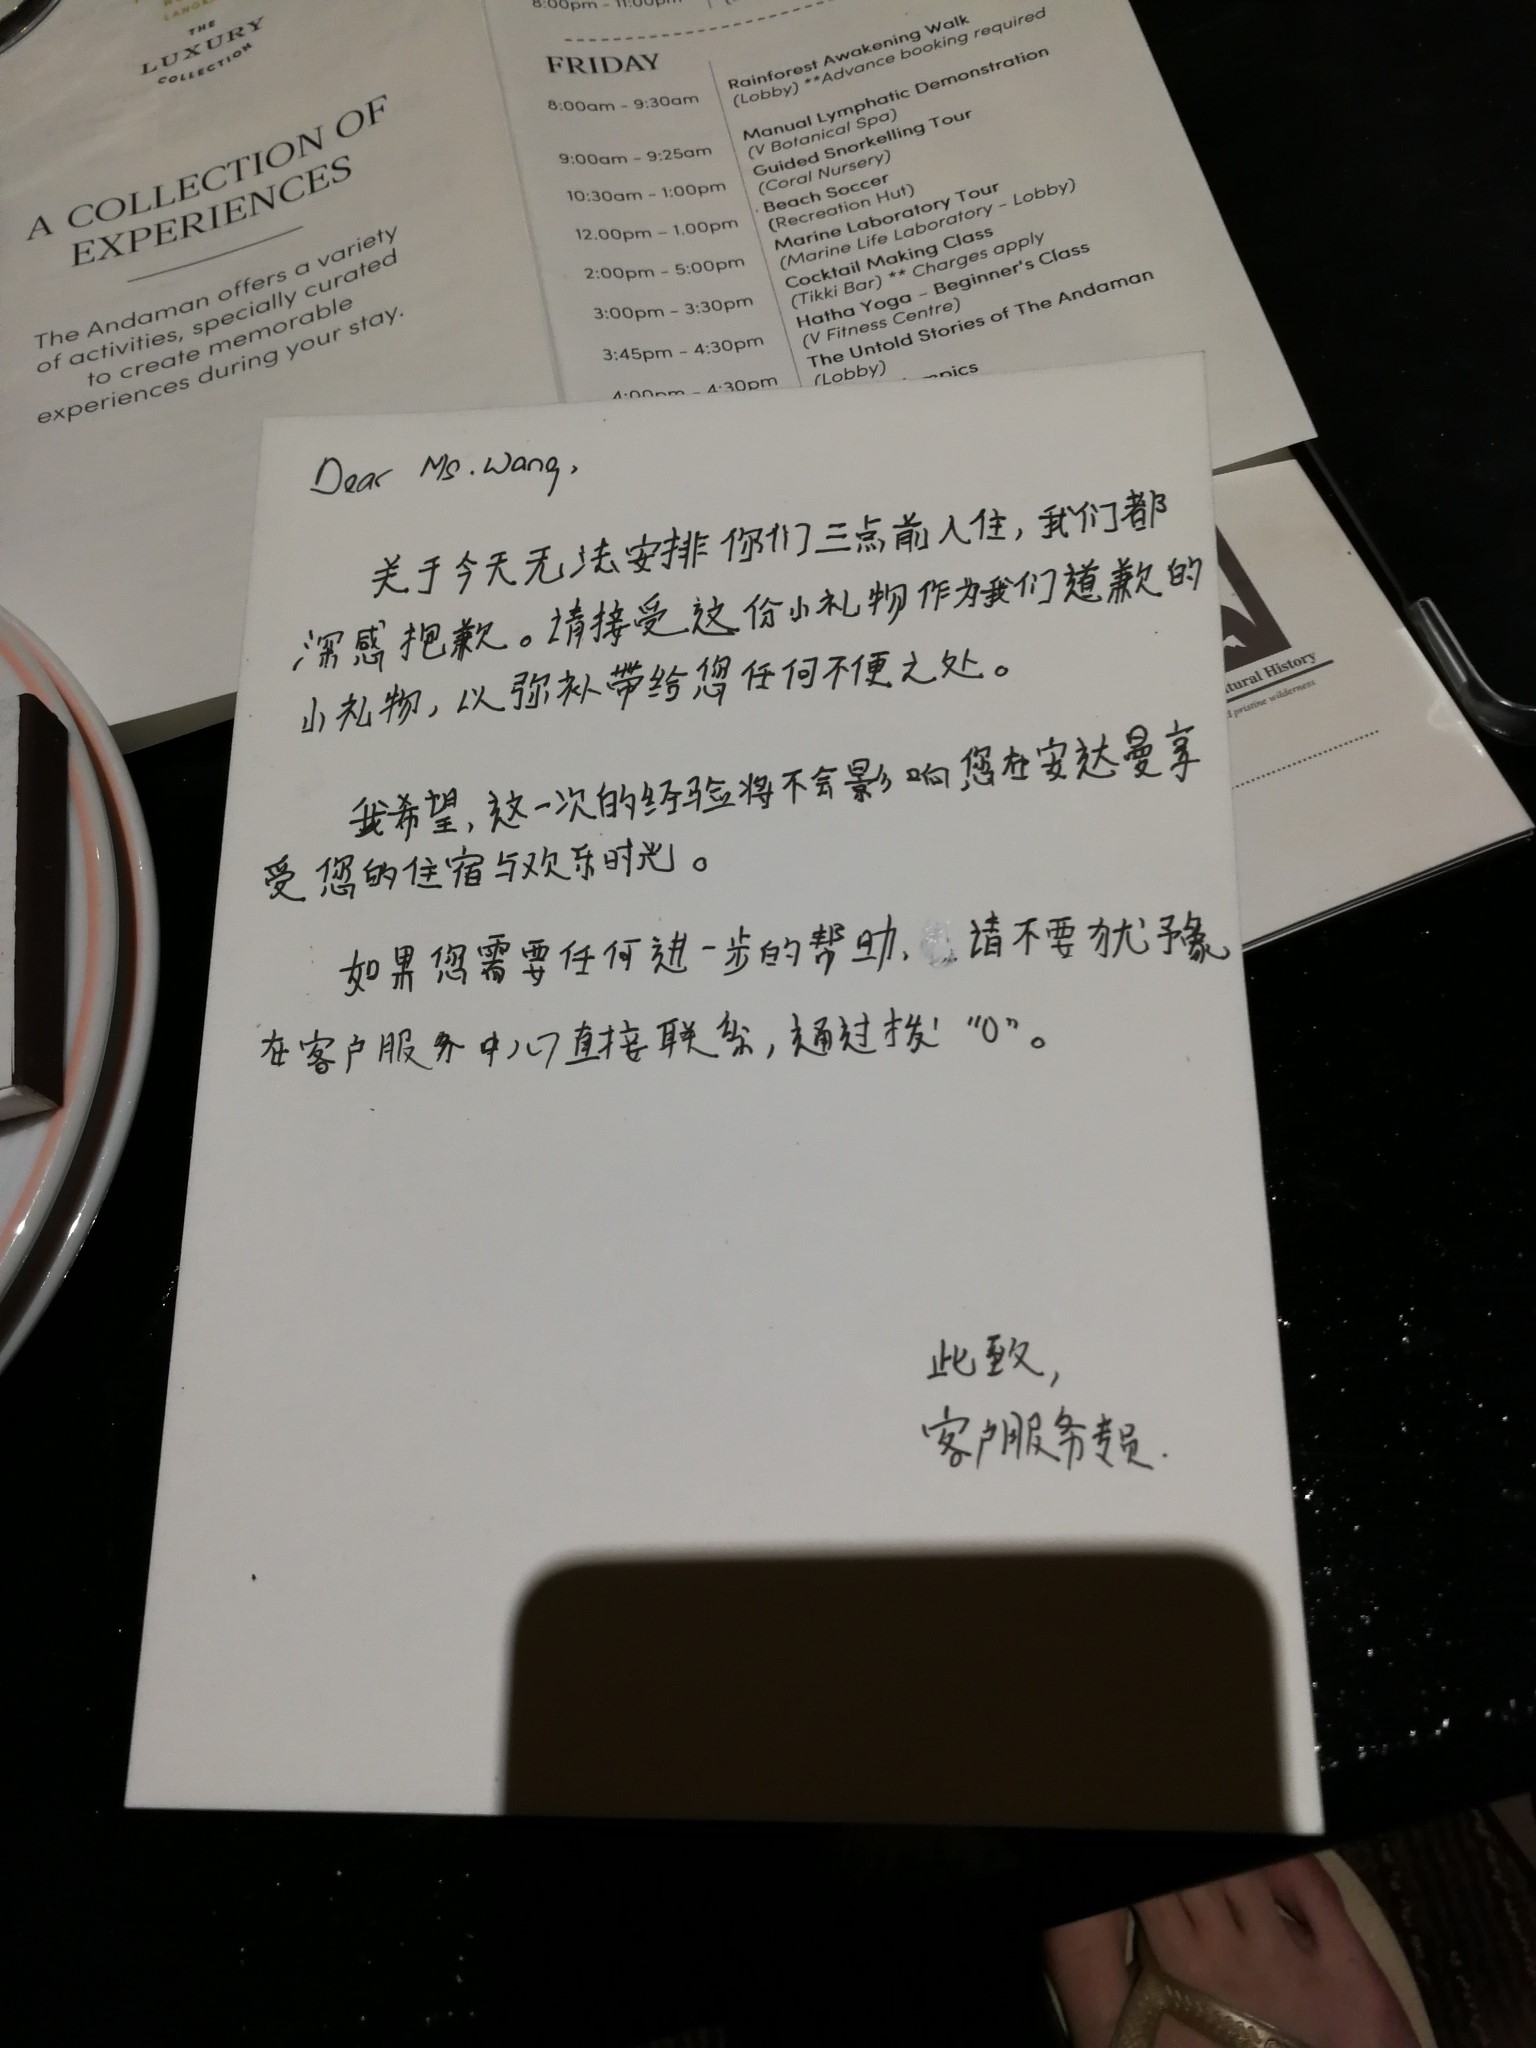 THE
LUXURY
COLLECTION
A COLLECTION OF
EXPERIENCES
The Andaman offers a variety
of activities, specially curated
to create memorable
experiences during your stay.
8:00pm - 11:00pm
FRIDAY
8:00am - 9:30am Rainforest Awakening Walk
(Lobby) **Advance booking required
9:00am - 9:25am Manual Lymphatic Demonstration
(V Botanical Spa)
10:30am - 1:00pm Guided Snorkelling Tour
(Coral Nursery)
12.00pm - 1.00pm Beach Soccer
(Recreation Hut)
2:00pm - 5:00pm Marine Laboratory Tour
(Marine Life Laboratory - Lobby)
3:00pm - 3:30pm Cocktail Making Class
(Tikki Bar) ** Charges apply
3:45pm - 4:30pm Hatha Yoga - Beginner's Class
(V Fitness Centre)
4:00pm - 4:30pm The Untold Stories of The Andaman
(Lobby)
Dear Ms. Wang,
关于今天无法安排你们三点前入住，我们都
深感抱歉。请接受这份小礼物作为我们道歉的
小礼物，以弥补带给您任何不便之处。
我希望，这一次的经验将不会影响您在安达曼享
受您的住宿与欢乐时光。
如果您需要任何进一步的帮助、请不要犹予象
在客户服务中心直接联系，通过拨“0”。
此致，
客户服务专员.
History
pristine wilderness